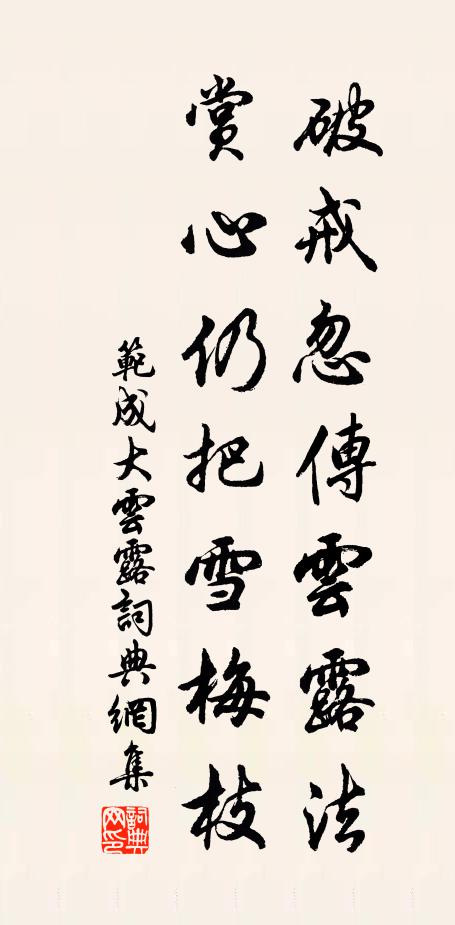 破戒忽傳雲露法
賞心仍把雪梅枝
範成大雲露詞典網集
詞典网印